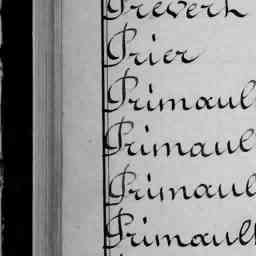 Prevert
Prier
Primaul
Primaul
Primaul
Primault